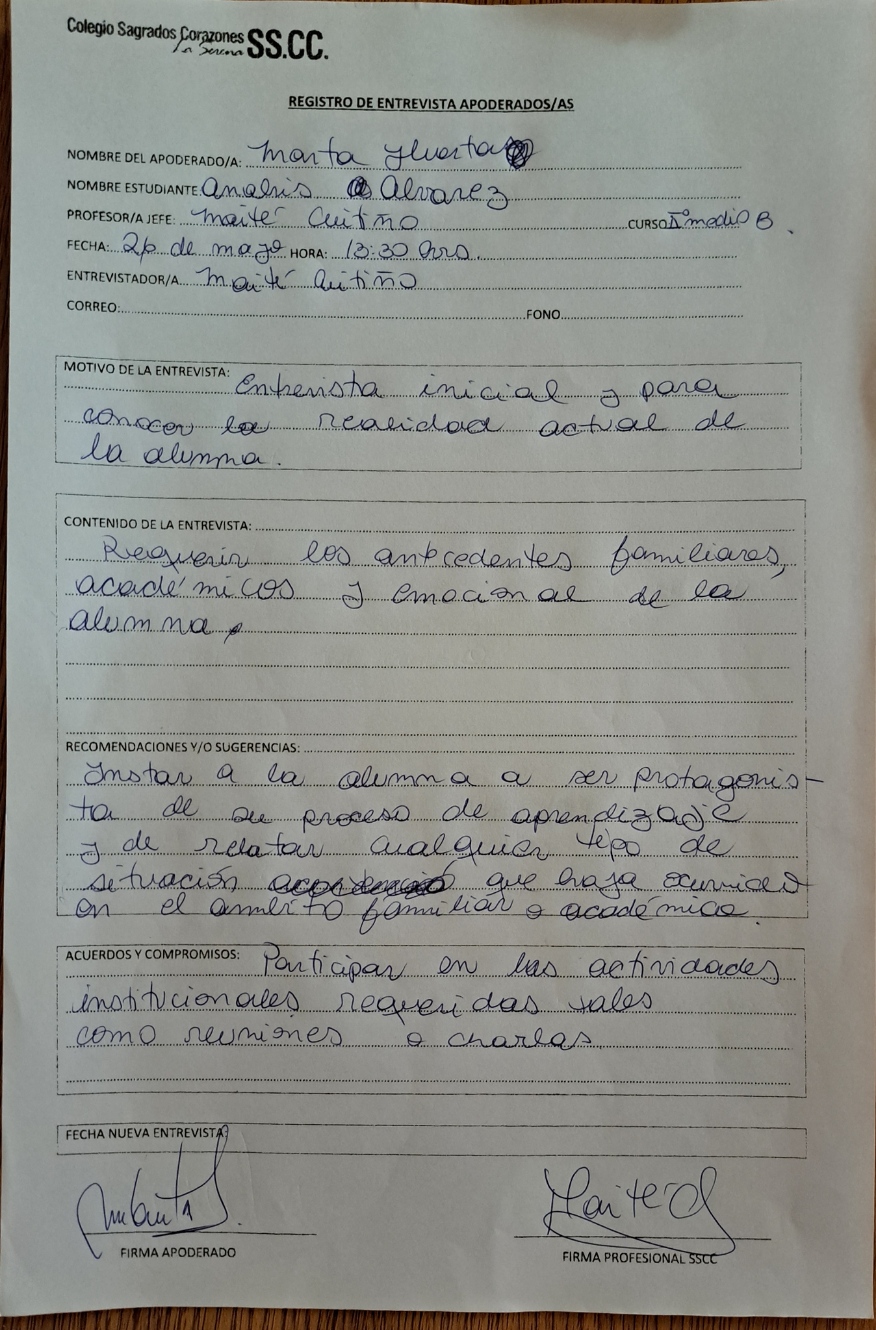 Colegio Sagrados Corazones SS.CC.
La Serena
REGISTRO DE ENTREVISTA APODERADOS/AS
NOMBRE DEL APODERADO/A: Marta Huerta
NOMBRE ESTUDIANTE: Analis Alvarez
PROFESOR/A JEFE: Maité Cuitiño CURSO: I° medio B.
FECHA: 26 de mayo HORA: 13:30 hrs.
ENTREVISTADOR/A Maité Cuitiño
CORREO: FONO
MOTIVO DE LA ENTREVISTA:
Entrevista inicial y para
conocer la realidad actual de
la alumna.
CONTENIDO DE LA ENTREVISTA:
Requerir los antecedentes familiares,
académicos y emocional de la
alumna.
RECOMENDACIONES Y/O SUGERENCIAS:
Instar a la alumna a ser protagonis-
ta de su proceso de aprendizaje
y de relatar cualquier tipo de
situación que haya ocurrido
en el ambito familiar o académico.
ACUERDOS Y COMPROMISOS: Participar en las actividades
institucionales requeridas tales
como reuniones o charlas
FECHA NUEVA ENTREVISTA:
Maité C
FIRMA APODERADO
FIRMA PROFESIONAL SSCC